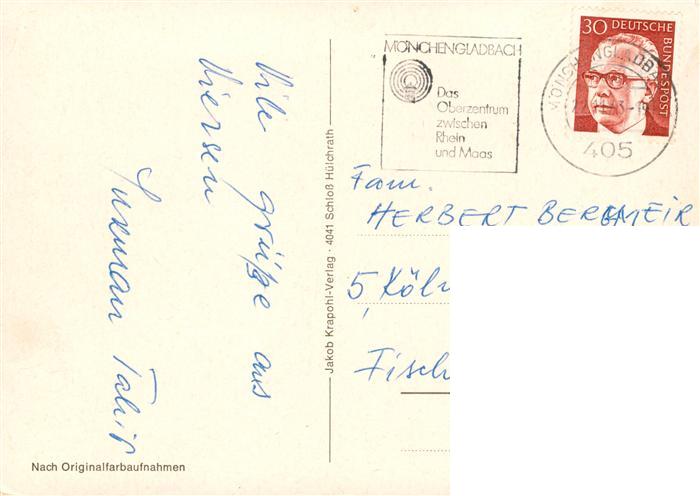 Viele grüße aus
Viersen
Nach Originalfarbaufnahmen
Jakob Krapohl-Verlag · 4041 Schloß Hülchrath
MÖNCHENGLADBACH
Das
Oberzentrum
zwischen
Rhein
und Maas
30 DEUTSCHE
BUNDESPOST
MÖNCHENGLADBA
405
Fam.
HERBERT
5 Köln
Fisch